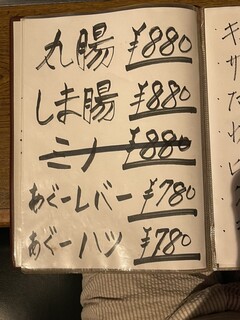 丸腸 ¥880
しま腸 ¥880
ミノ ¥880
あぐーレバー ¥780
あぐーハツ ¥780
キ
サ
た